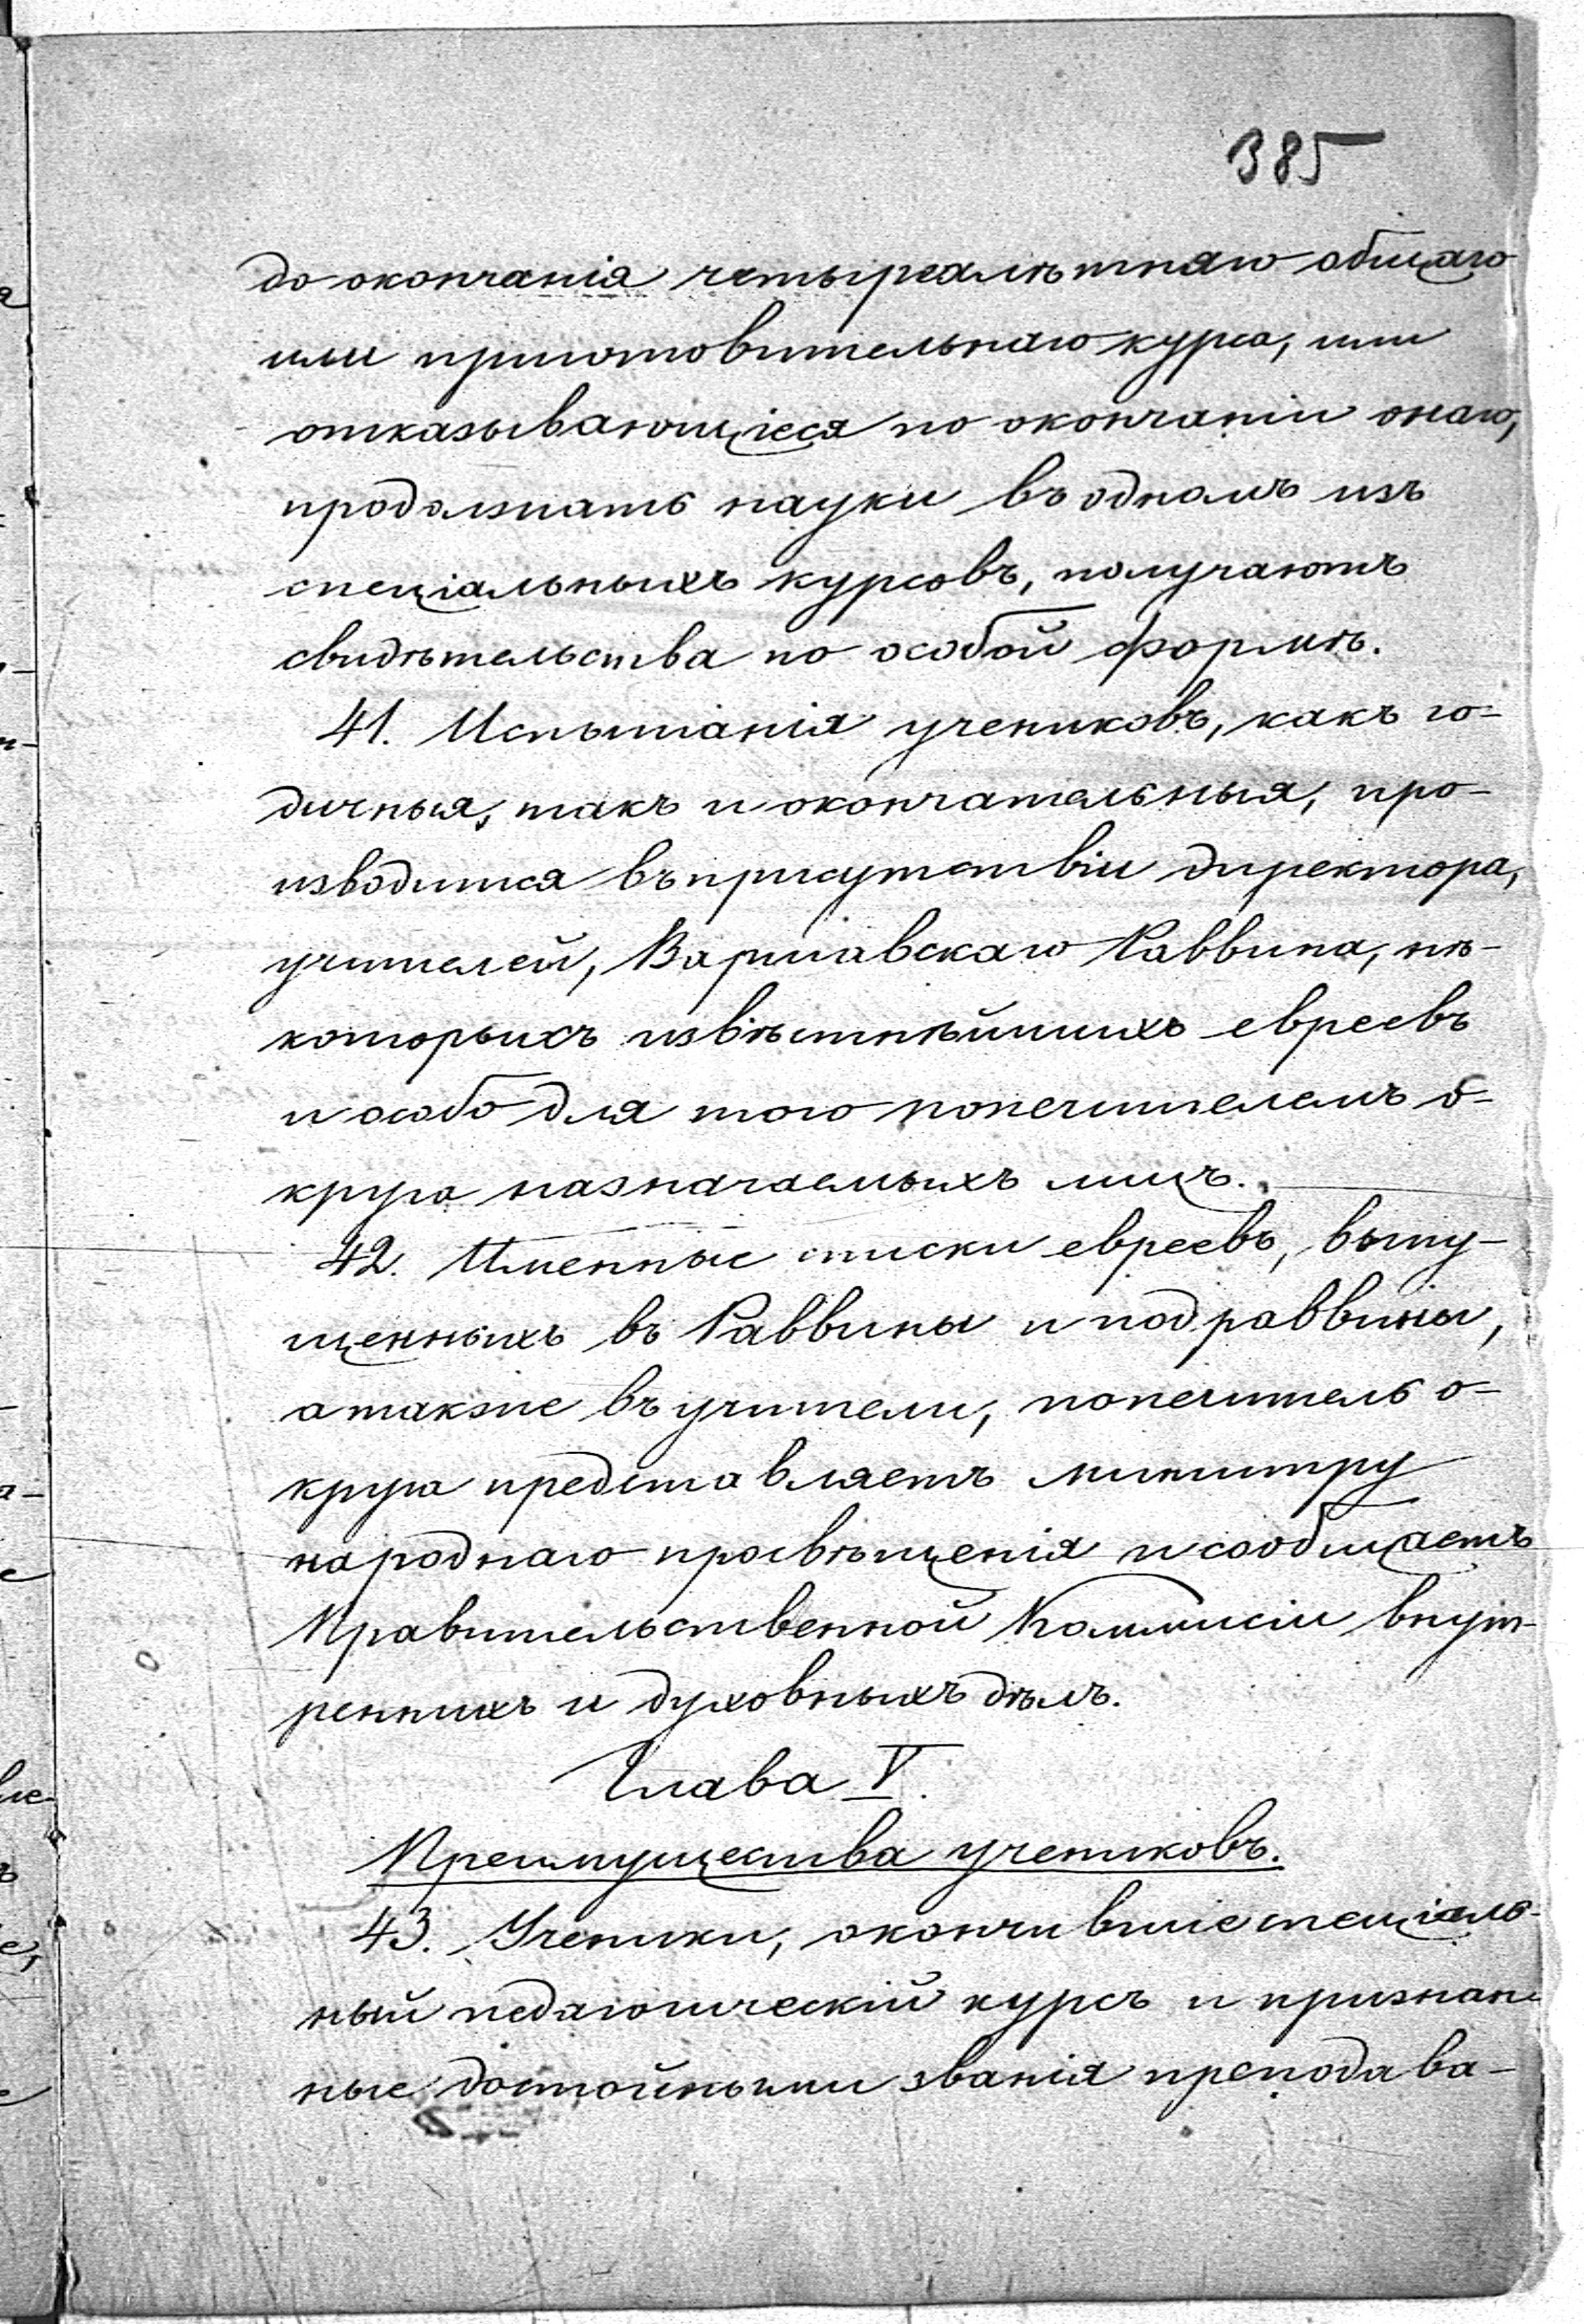 385
до окончанія четырехлѣтняго общаго
или приготовительнаго курса, или
отказывающіеся по окончаніи онаго,
продолжать науки въ одномъ изъ
спеціальныхъ курсовъ, получаютъ
свидѣтельства по особой формѣ.
41. Испытанія учениковъ, какъ го-
дичныя, такъ и окончательныя, про-
изводится въ присутствіи директора,
учителей, Варшавскаго Раввина, нѣ-
которыхъ извѣстнѣйшихъ евреевъ
и особо для того попечителемъ о-
круга назначаемыхъ лицъ.
42. Именные списки евреевъ, выпу-
щенныхъ въ Раввины и подраввины,
а также въ учители, попечитель о-
круга представляетъ министру
народнаго просвѣщенія и сообщаетъ
Правительственной Коммисіи внут-
реннихъ и духовныхъ дѣлъ.
Глава V.
Преимущества учениковъ.
43. Ученики, окончившіе спеціаль-
ный педагогическій курсъ и признан-
ные достойными званія преподава-